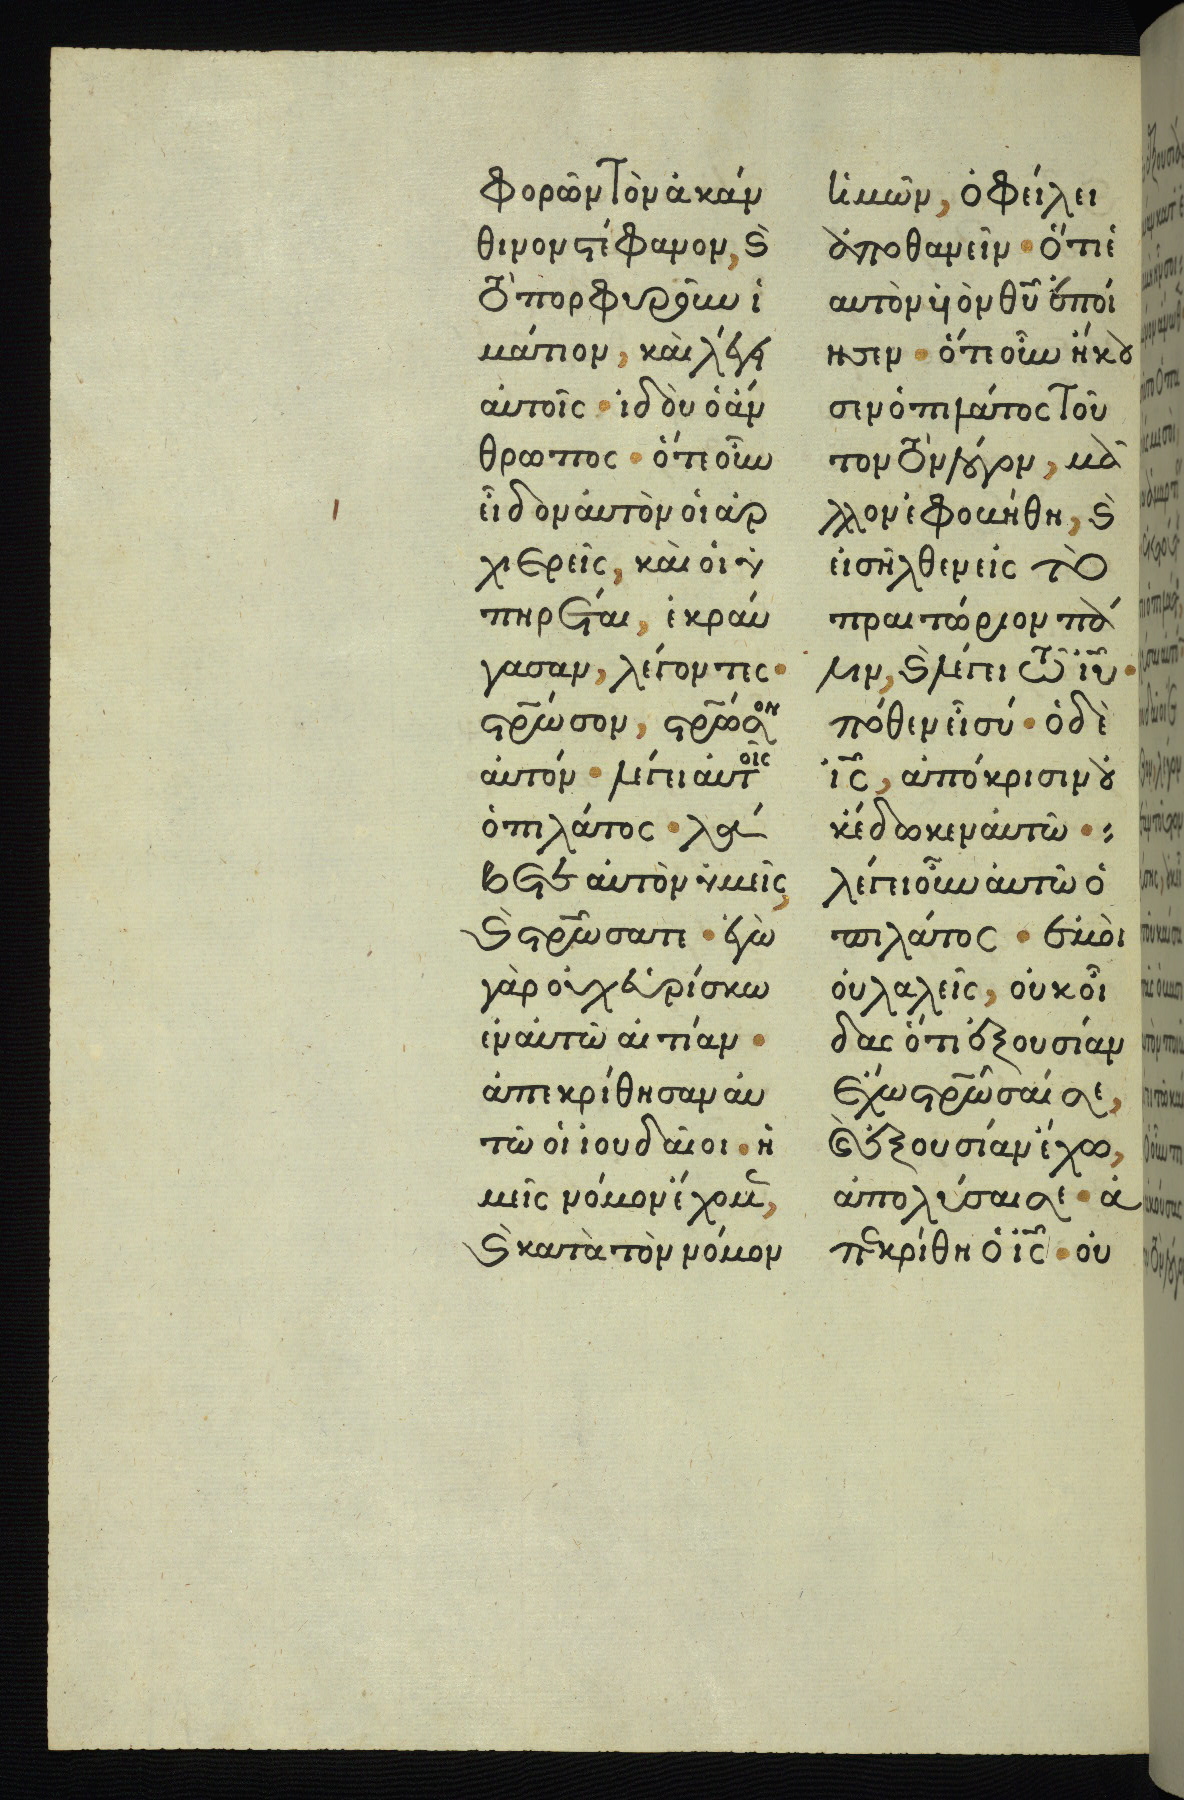 φορῶν τὸν ἀκάν
θινον στέφανον, ϗ
τὸ πορφυροῦν ἱ
μάτιον, καὶ λέγει
αὐτοῖς · ἰδοὺ ὁ ἄν
θρωπος · ὅτε οὖν
εἶδον αὐτὸν οἱ ἀρ
χιερεῖς, καὶ οἱ ὑ
πηρέται, ἐκραύ
γασαν, λέγοντες ·
στρ̅ωσον, στρ̅ωσον
αὐτόν · λέγει αὐτοῖς
ὁ πιλάτος · λά
βετε αὐτὸν ὑμεῖς,
ϗ στρ̅ωσατε · ἐγὼ
γὰρ οὐχ εὑρίσκω
ἐν αὐτῶ αἰτίαν ·
ἀπεκρίθησαν αὐ
τῶ οἱ ἰουδαῖοι · ἡ
μεῖς νόμον ἔχομεν,
ϗ κατὰ τὸν νόμον
ἡμῶν, ὀφείλει
ἀποθανεῖν · ὅτι ἑ
αυτὸν υἱὸν θυ̅ ἐποί
ησεν · ὅτε οὖν ἤκου
σεν ὁ πιλάτος τοῦ
τον τὸν λόγον, μᾶ
λλον ἐφοβήθη, ϗ
εἰσῆλθεν εἰς τὸ
πραιτώριον πά
λιν, ϗ λέγει τῶ ιυ̅ ·
πόθεν εἶ σύ · ὁ δὲ
ις̅, ἀπόκρισιν οὐ
κ ἔδωκεν αὐτῶ ·:
λέγει οὖν αὐτῶ ὁ
πιλάτος · ἐμοὶ
οὐ λαλεῖς, οὐκ οἶ
δας ὅτι ἐξουσίαν
ἔχω στρ̅ωσαί σε,
ϗ ἐξουσίαν ἔχω,
ἀπολύσαι σε · ἀ
πεκρίθη ὁ ις̅ · οὐ